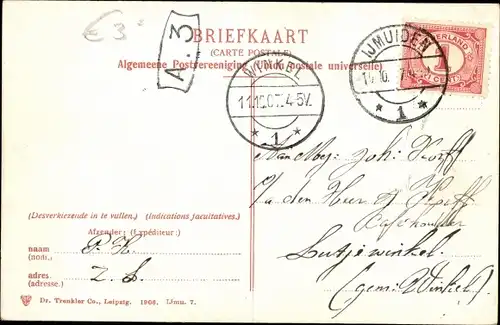 € 3
A.3
BRIEFKAART
(CARTE POSTALE)
Algemeene Postvereeniging (Union postale universelle)
WINKEL
11.10.07 4-5V.
1
IJMUIDEN
1
NEDERLAND
1
CENT
Mej: Joh: Korff
den Heer Korff
Cafehouder
Lutjewinkel.
(gem: Winkel).
(Desverkiezende in te vullen.) (Indications facultatives.)
Afzender: (Expéditeur:)
naam (nom.), P. K
adres (adresse.) Z. S.
Dr. Trenkler Co., Leipzg. 1906. IJmu. 7.